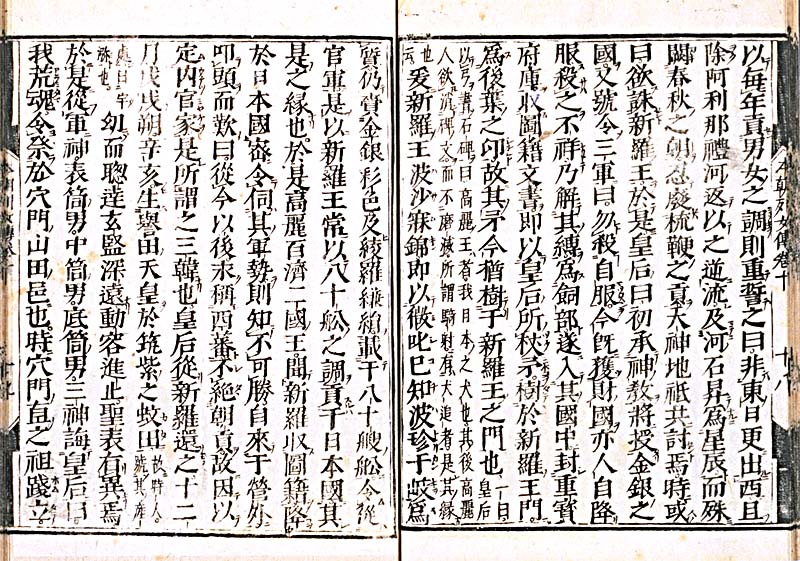 以毎年貢男女之調則重誓之曰非東日更出西且
除阿利那禮河返以之逆流及河石昇爲星辰而殊
闕春秋之朝怠廢梳鞭之貢天神地祇共討焉時或
曰欲誅新羅王於是皇后曰初承神敎將授金銀之
國又號令三軍曰勿殺自服今旣獲財國亦人自降
服殺之不祥乃解其縛爲飼部遂入其國中封重寶
府庫收圖籍文書即以皇后所杖矛樹於新羅王門
爲後葉之印故其矛今猶樹于新羅王之門也一曰皇后
以弓書石碑曰高麗王者我日本之犬也其後高麗
人欲沉碑文而不磨滅所謂騎射有犬追者是其縁
也云爰新羅王波沙寐錦即以微叱已知波珍干岐爲
質仍賫金銀彩色及綾羅縑絹載于八十艘船令從
官軍是以新羅王常以八十船之調貢于日本國其
是之縁也於是高麗百濟二國王聞新羅收圖籍降
於日本國密令伺其軍勢則知不可勝自來于營外
叩頭而歎曰從今以後永稱西蕃不絕朝貢故因以
定内官家是所謂之三韓也皇后從新羅還之十二
月戊戌朔辛亥生譽田天皇於筑紫之蚊田故時人號其産
處曰宇瀰也幼而聰達玄監深遠動容進止聖表有異焉
於是從軍神表筒男中筒男底筒男三神誨皇后曰
我荒魂令祭於穴門山田邑也時穴門直之祖踐立